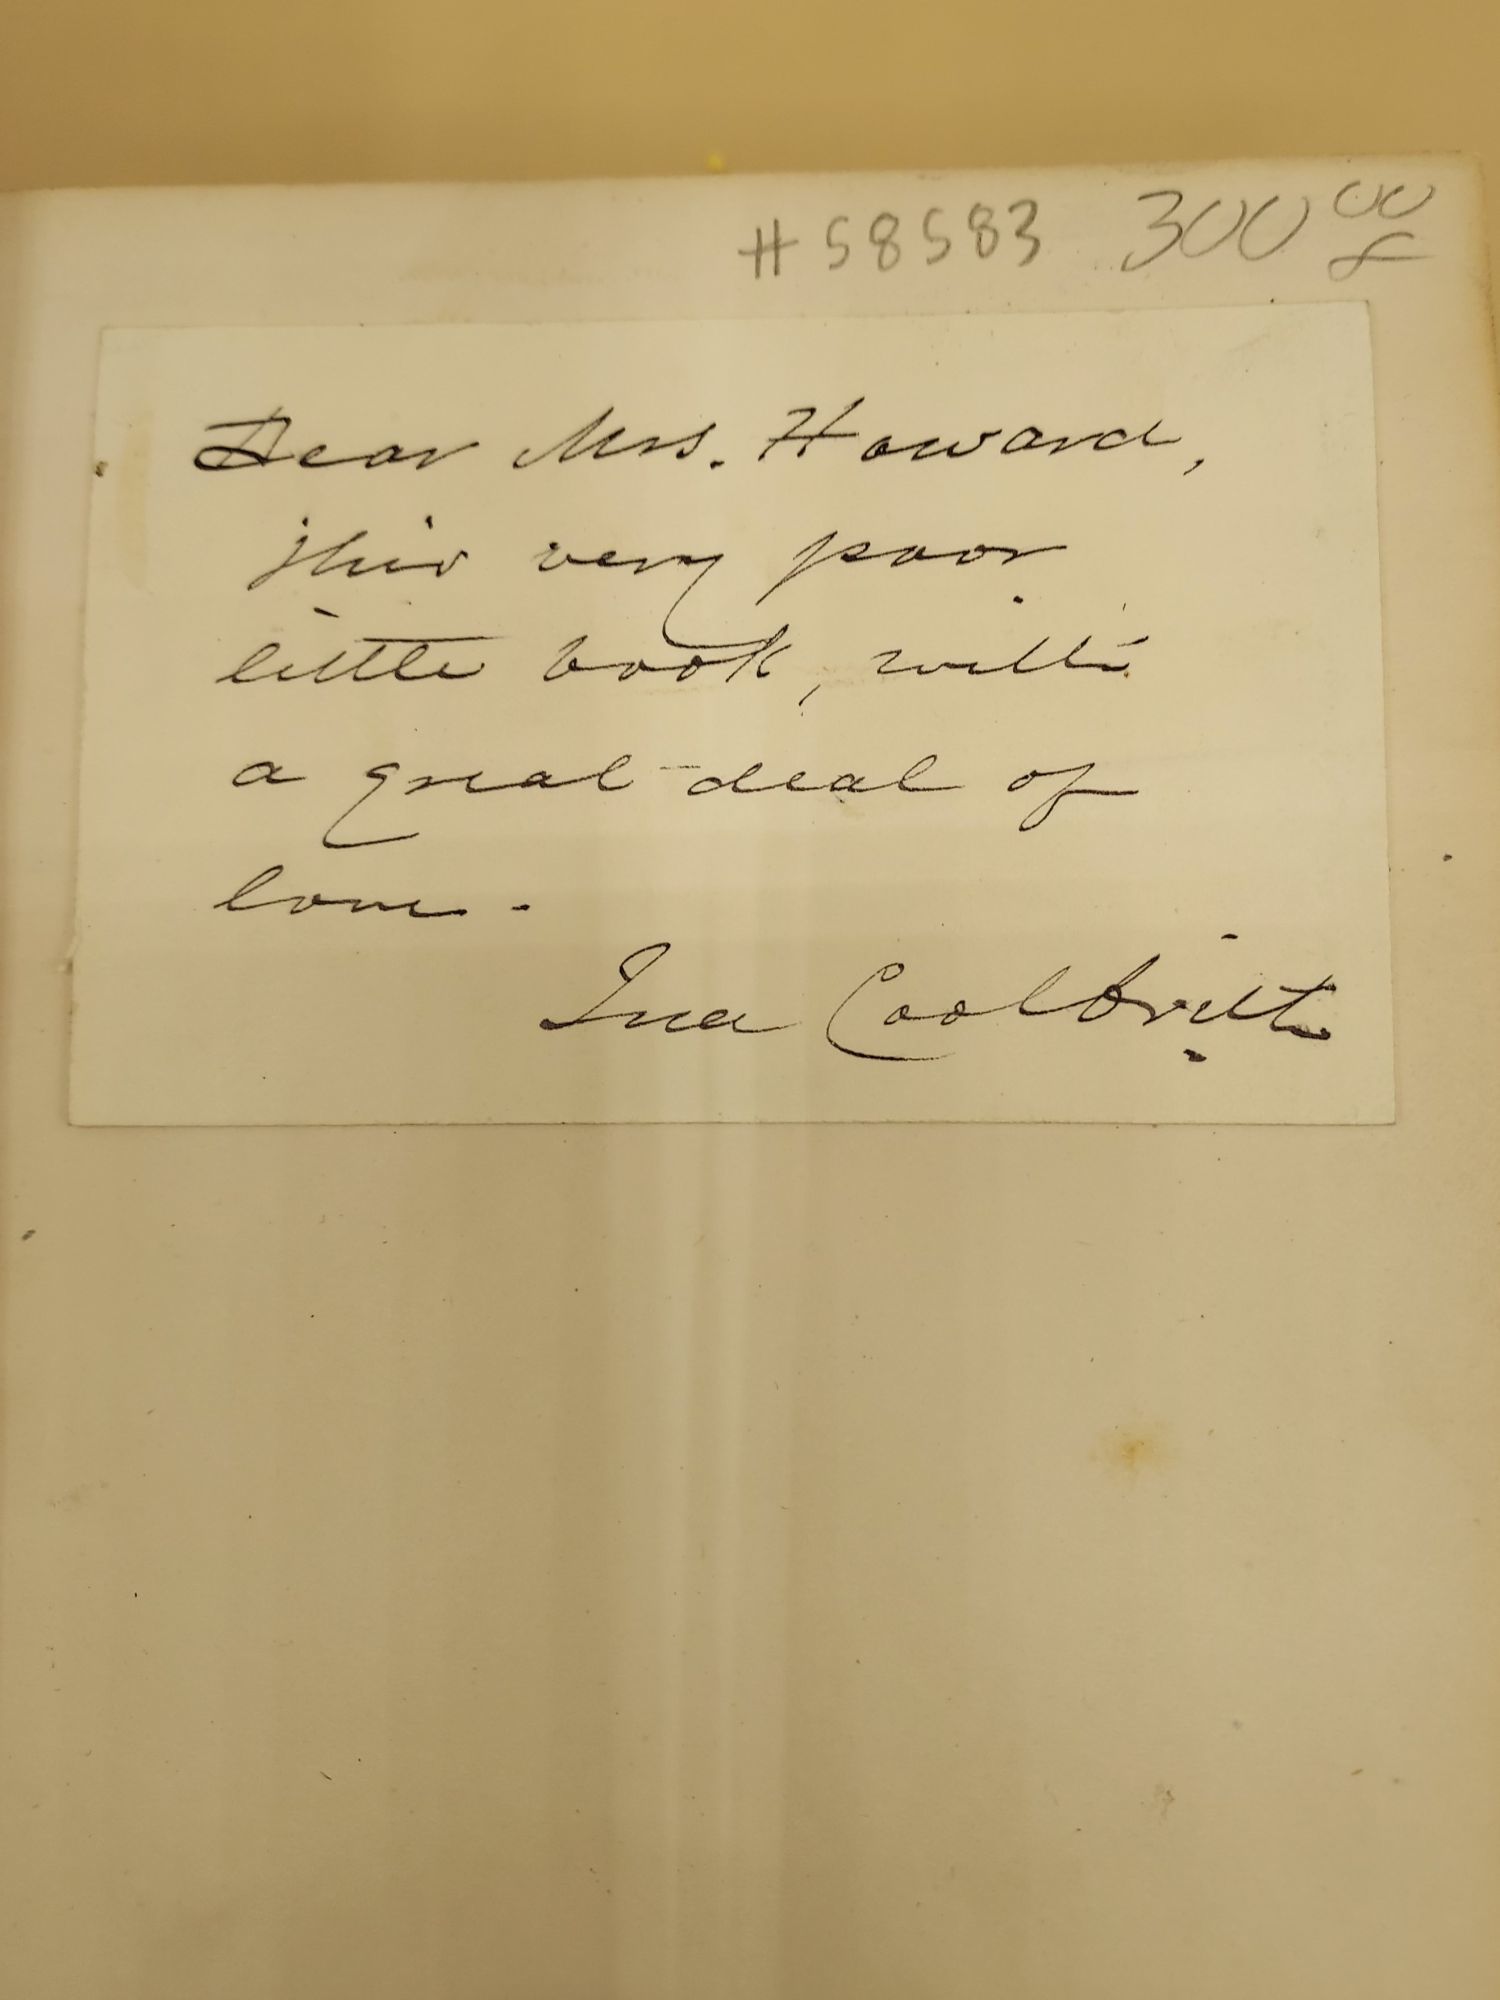 #58583 300 00
Dear Mrs. Howard,
this very poor
little book, with
a great deal of
love.
Ina Coolbrith